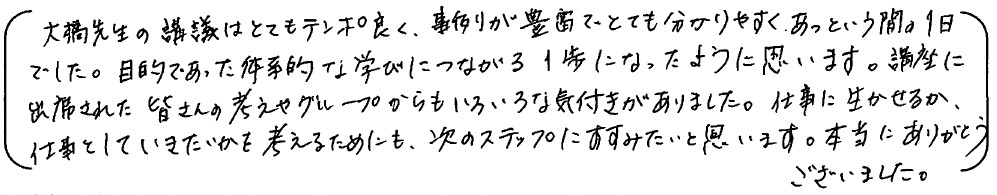 大橋先生の講議はとてもテンポ良く、事例りが豊富でとても分かりやすく、あっという間の1日
でした。目的であった体系的な学びにつながる1歩になったように思います。講座に
出席された皆さんの考えやグループからもいろいろな気付きがありました。仕事に生かせるか、
仕事としていきたいかを考えるためにも、次のステップにすすみたいと思います。本当にありがとう
ございました。